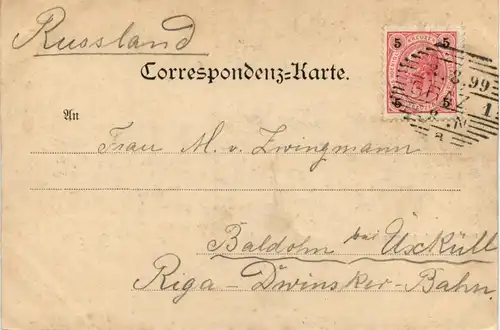 Russland
Correspondenz-Karte.
5 5
5 5
8.99
GRAZ
1
An
Frau M. v. Zwingmann
Baldohn bei Üxküll
Riga-Dwinsker-Bahn.